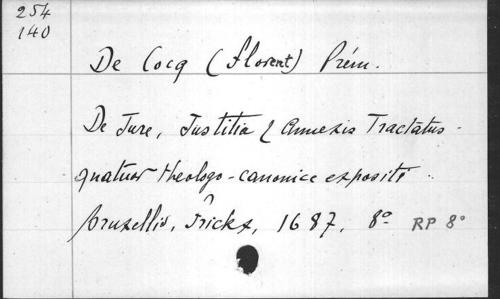 254
140
De Cocq (Florent) Prém.
De Jure, Justitia & Annexis Tractatus
quatuor theologo-canonice expositi
Bruxellis, Fricks, 1687, 8º RP 8º